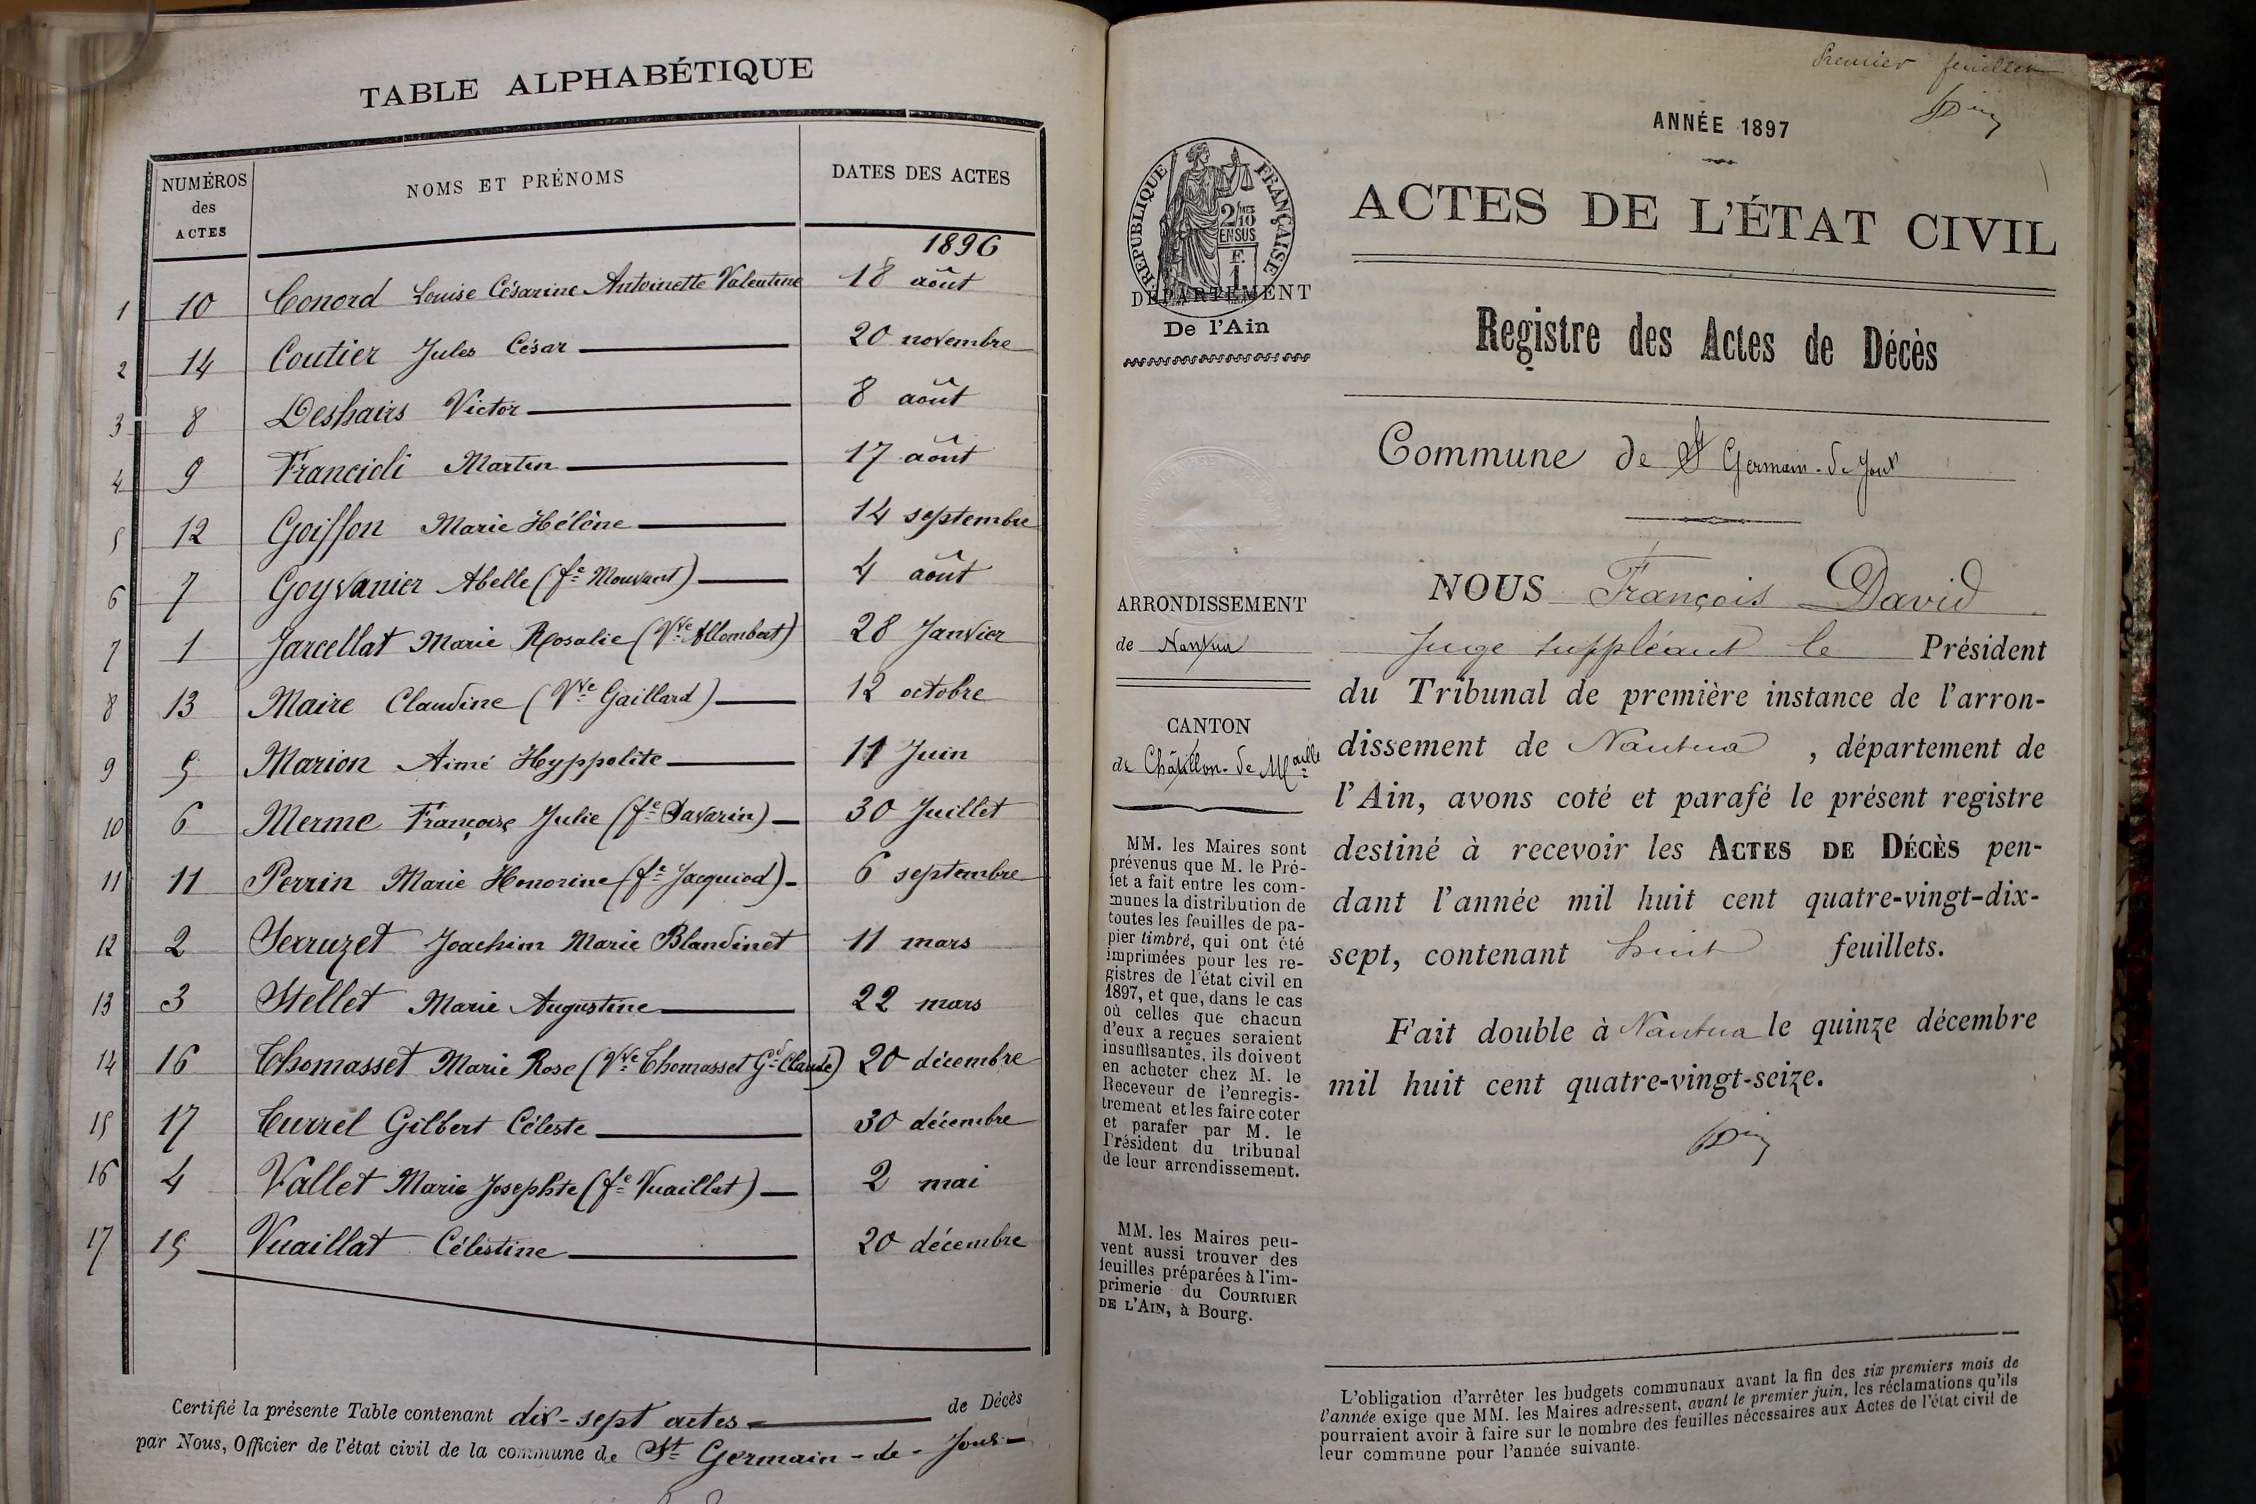 TABLE ALPHABÉTIQUE
NUMÉROS
des
ACTES
NOMS ET PRÉNOMS
DATES DES ACTES
1896
1 10 Conord Louise Césarine Antoinette Valentine 18 août
2 14 Coutier Jules César 20 novembre
3 8 Deshairs Victor 8 août
4 9 Francioli Martin 17 août
5 12 Goiffon Marie Hélène 14 septembre
6 7 Goyvanier Abelle (fe Mouvant) 4 août
7 1 Jarcellat Marie Rosalie (Vve Allombert) 28 Janvier
8 13 Maire Claudine (Vve Gaillard) 12 octobre
9 5 Marion Aimé Hyppolite 11 Juin
10 6 Merme Françoise Julie (fe Savarin) 30 Juillet
11 11 Perrin Marie Honorine (fe Jacquiod) 6 septembre
12 2 Serruzet Joachim Marie Blandinet 11 mars
13 3 Stellet Marie Augustine 22 mars
14 16 Thomasset Marie Rose (Vve Thomasset Gd Claude) 20 décembre
15 17 Turrel Gilbert Céleste 30 décembre
16 4 Vallet Marie Josephte (fe Vuaillat) 2 mai
17 15 Vuaillat Célestine 20 décembre
Certifié la présente Table contenant dix-sept actes de Décès
par Nous, Officier de l'état civil de la commune de St Germain-de-Joux
Premier feuillet
ANNÉE 1897
RÉPUBLIQUE FRANÇAISE
2/10 MES
EN SUS
F.
1.
DÉPARTEMENT
De l'Ain
ACTES DE L'ÉTAT CIVIL
Registre des Actes de Décès
Commune de St Germain-de-Joux
ARRONDISSEMENT
de Nantua
CANTON
de Châtillon-de-Maille
MM. les Maires sont
prévenus que M. le Pré-
fet a fait entre les com-
munes la distribution de
toutes les feuilles de pa-
pier timbré, qui ont été
imprimées pour les re-
gistres de l'état civil en
1897, et que, dans le cas
où celles que chacun
d'eux a reçues seraient
insuffisantes, ils doivent
en acheter chez M. le
Receveur de l'enregis-
trement et les faire coter
et parafer par M. le
Président du tribunal
de leur arrondissement.
MM. les Maires peu-
vent aussi trouver des
feuilles préparées à l'im-
primerie du COURRIER
DE L'AIN, à Bourg.
NOUS François David
Juge suppléant le Président
du Tribunal de première instance de l'arron-
dissement de Nantua, département de
l'Ain, avons coté et parafé le présent registre
destiné à recevoir les ACTES DE DÉCÈS pen-
dant l'année mil huit cent quatre-vingt-dix-
sept, contenant huit feuillets.
Fait double à Nantua le quinze décembre
mil huit cent quatre-vingt-seize.
L'obligation d'arrêter les budgets communaux avant la fin des six premiers mois de
l'année exige que MM. les Maires adressent, avant le premier juin, les réclamations qu'ils
pourraient avoir à faire sur le nombre des feuilles nécessaires aux Actes de l'état civil de
leur commune pour l'année suivante.